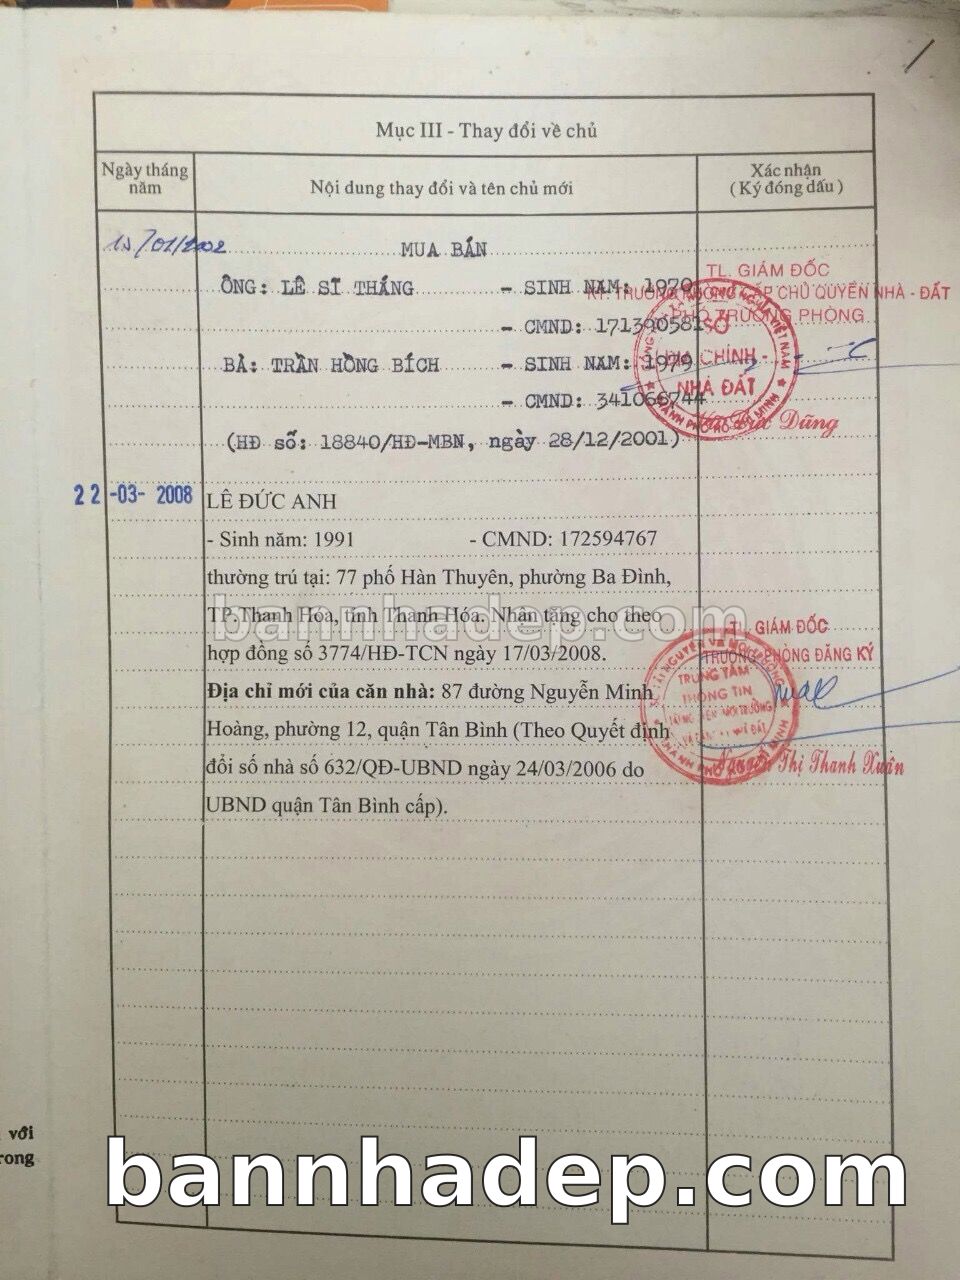 Mục III - Thay đổi về chủ
Ngày tháng năm
Nội dung thay đổi và tên chủ mới
Xác nhận
( Ký đóng dấu )
/01/2002
MUA BÁN
ÔNG: LÊ SĨ THÁNG - SINH NĂM: 1970
- CMND: 171390581
BÀ: TRẦN HỒNG BÍCH - SINH NĂM: 1979
- CMND: 341066744
(HĐ số: 18840/HĐ-MBN, ngày 28/12/2001)
TL. GIÁM ĐỐC
KT. TRƯỞNG PHÒNG CẤP CHỦ QUYỀN NHÀ - ĐẤT
PHÓ TRƯỞNG PHÒNG
SỞ
ĐỊA CHÍNH -
NHÀ ĐẤT
Đức Dũng
22 -03- 2008
LÊ ĐỨC ANH
- Sinh năm: 1991 - CMND: 172594767
thường trú tại: 77 phố Hàn Thuyên, phường Ba Đình,
TP.Thanh Hóa, tỉnh Thanh Hóa. Nhận tặng cho theo
hợp đồng số 3774/HĐ-TCN ngày 17/03/2008.
Địa chỉ mới của căn nhà: 87 đường Nguyễn Minh
Hoàng, phường 12, quận Tân Bình (Theo Quyết định
đổi số nhà số 632/QĐ-UBND ngày 24/03/2006 do
UBND quận Tân Bình cấp).
bannhadep.com
TL. GIÁM ĐỐC
TRƯỞNG PHÒNG ĐĂNG KÝ
TRUNG TÂM
THÔNG TIN
Nguyễn Thị Thanh Xuân
với
rong
bannhadep.com